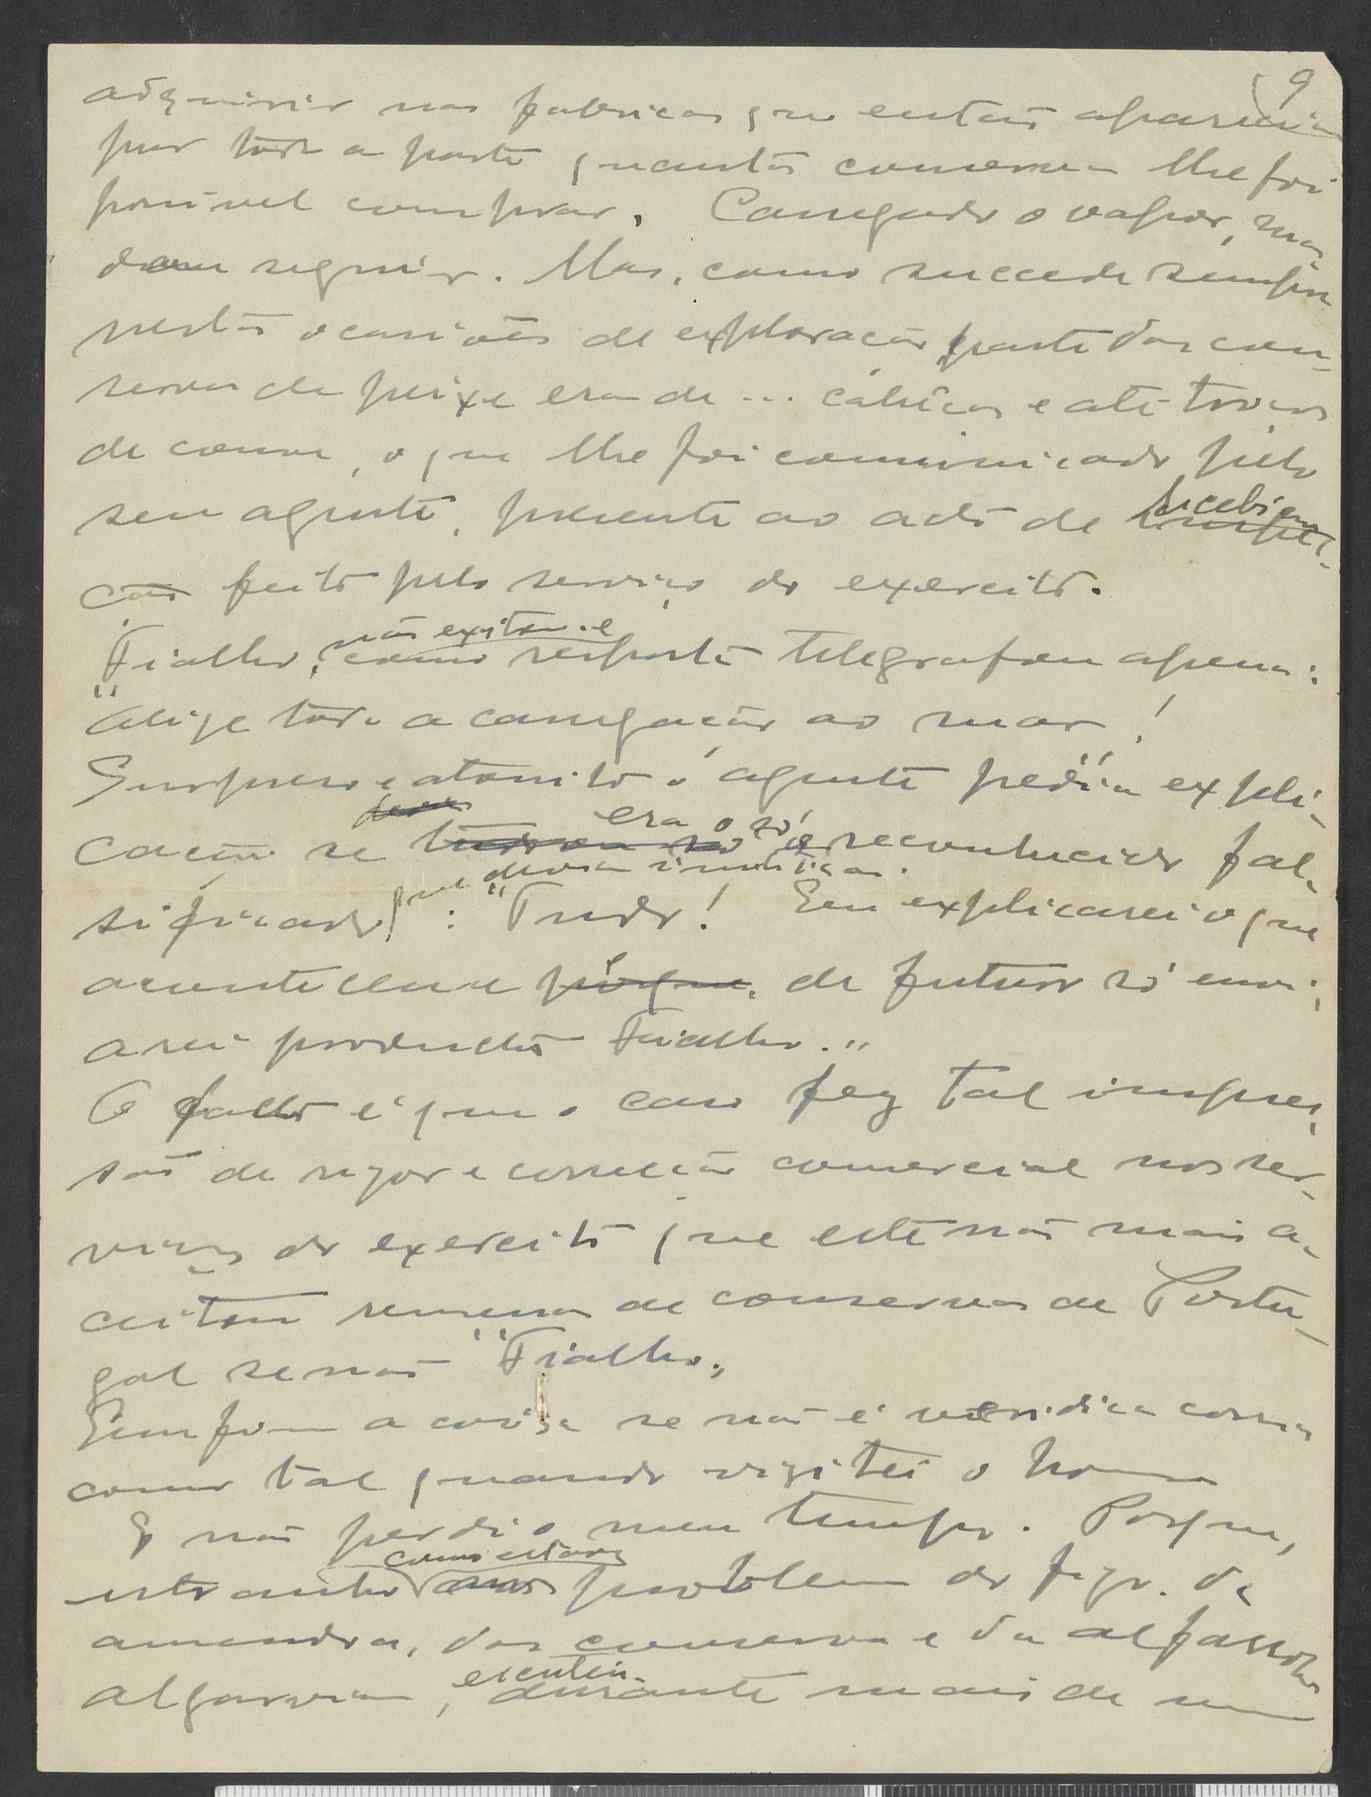 9
adquirir nas fabricas que então apareciam
por toda a parte quantas conservas lhe foi
possivel comprar. Carregado o vapor, man-
dou seguir. Mas, como succede sempre
nestas ocasiões de exploração, parte das con-
servas de peixe eram de ... cabeças e até troços
de couve, o que lhe foi comunicado pelo
seu agente, presente ao acto de
recebimen-
ção feito pelo serviço do exercito.
não exitou e
Fialho, como resposta telegrafou apenas:
"Alije toda a carregação ao mar"!
Surpreso e atonito o agente pedia expli-
cação se tudo ou só o reconhecido fal-
era o só
sificado que devia inutilizar: "Tudo! Eu explicarei o que
aconteceu e porque, de futuro só envi-
arei productos Fialho."
O facto é que o caso fez tal impres-
são de rigor e correcção comercial nos ser-
viços do exercito que este não mais a-
ceitou remessas de conservas de Portu-
gal senão "Fialho".
Emfim a coisa se não é veridica corria
como tal quando visitei o homem
E não perdi o meu tempo. Porque,
problema do figo, da
amendoa, das conservas e da alfarroba
algarvia, durante mais de um